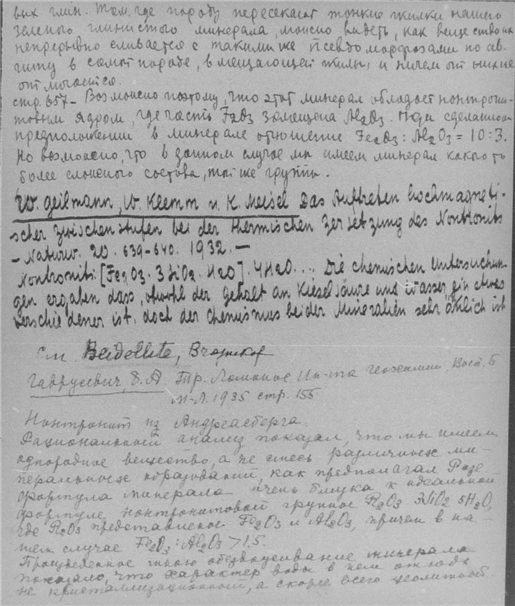 вых глин. Там, где породу пересекают тонкие жилки нашего
зеленого глинистого минерала, можно видеть, как вещество их
непрерывно сливается с такими же псевдоморфозами по ав-
гиту в самой породе, вмещающей жилы и ничем от них не
отличается.
стр. 657 - Возможно поэтому, что этот минерал обладает нонтрони-
товым ядром, где часть Fe2O3 замещена Al2O3. При сделанном
предположении в минерале отношение Fe2O3 : Al2O3 = 10:3.
Но возможно, что в данном случае мы имеем минерал какого то
более сложного состава, той же группы.
W. Geilmann, W. Klemm u. K. Meisel Das Auftreten hochmagneti-
scher Zwischenstufen bei der thermischen Zersetzung des Nontronits
- Naturw. 20. 639-640. 1932. -
Nontronit: [Fe2O3. 3SiO2. H2O]. 4H2O.... Die chemischen Untersuchun-
gen ergaben dass, obwohl der Gehalt an Kieselsäure und Wasser ein etwas
verschiedener ist, doch der Chemismus beider Mineralien sehr ähnlich ist
см Beidellite,
Гаврусевич, Б. А. Тр. Ломонос Ин-та геохимии Вып. 5
М-Л. 1935 стр. 155.
Нонтронит из Андреасберга.
Рациональный анализ показал, что мы имеем
однородное вещество, а не смесь различных ми-
неральных образований, как предполагал Розе
формула минерала очень близка к идеальной
формуле нонтронитовой группы R2O3 3SiO2 5H2O,
где R2O3 представлено Fe2O3 и Al2O3, причем в на-
шем случае Fe2O3 : Al2O3 > 1.5.
обезвоживание минерала
показало, что характер воды в нем отнюдь
не кристаллизационный, а скорее всего цеолитной.